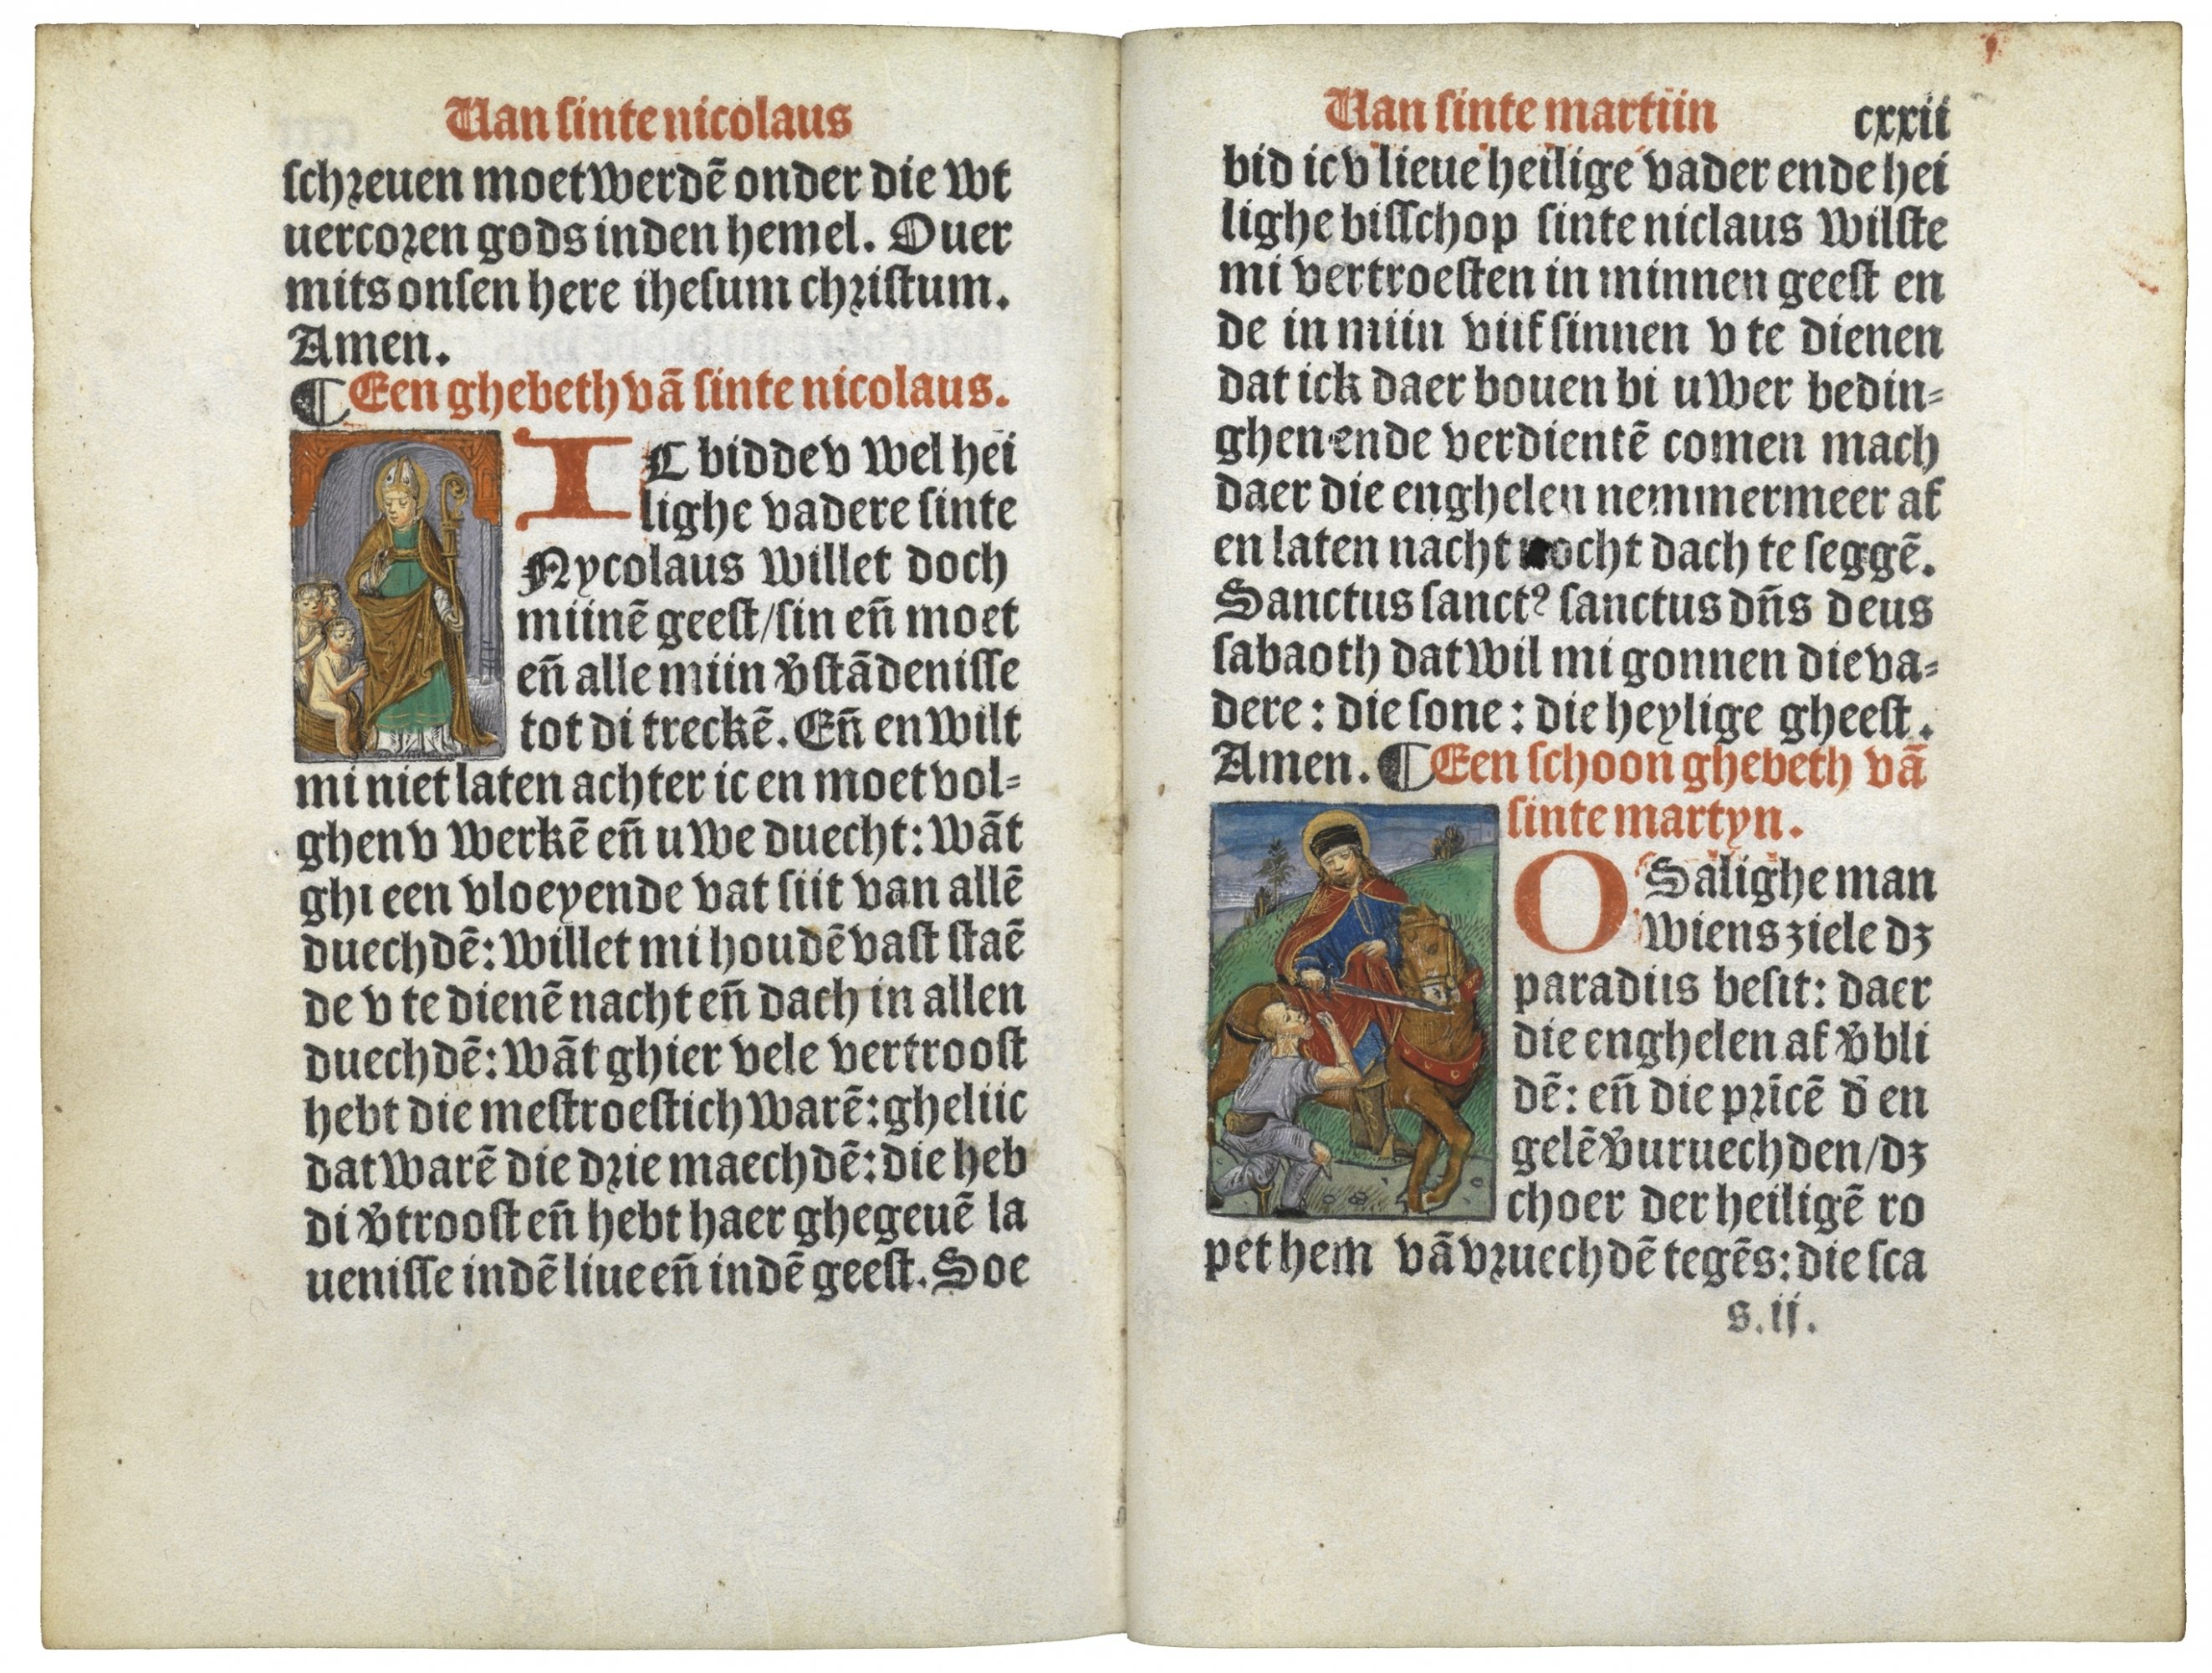 Uan sinte nicolaus
schreuen moet werdē onder die wt
uercoren gods inden hemel. Ouer
mits onsen here ihesum christum.
Amen.
¶ Een ghebeth vā sinte nicolaus.
IC bidde v wel hei
lighe vadere sinte
Nycolaus willet doch
miinē geest/sin eñ moet
eñ alle miin v̄stādenisse
tot di treckē. Eñ en wilt
mi niet laten achter ic en moet vol⸗
ghen v werkē eñ uwe duecht: wāt
ghi een vloeyende vat siit van allē
duechdē: willet mi houdē vast staē
de v te dienē nacht eñ dach in allen
duechdē: wāt ghi er vele vertroost
hebt die mestroestich warē: gheliic
dat warē die drie maechdē: die heb
di v̄troost eñ hebt haer ghegeuē la
uenisse indē liue eñ indē geest. Soe
Uan sinte martiin cxxii
bid ic v lieue heilige vader ende hei
lighe bisschop sinte niclaus wilste
mi vertroesten in minnen geest en
de in miin viif sinnen v te dienen
dat ick daer bouen bi uwer bedin⸗
ghen ende verdientē comen mach
daer die enghelen nemmermeer af
en laten nacht nocht dach te seggē.
Sanctus sanctꝰ sanctus dñs deus
sabaoth dat wil mi gonnen die va⸗
dere: die sone: die heylige gheest.
Amen. ¶ Een schoon ghebeth vā
sinte martyn.
O Salighe man
wiens ziele dꝫ
paradiis besit: daer
die enghelen af v̄bli
dē: eñ die prīcē d̄ en
gelē v̄uruechden/dꝫ
choer der heiligē ro
pet hem vā vruechdē tegēs: die sca
s.ij.